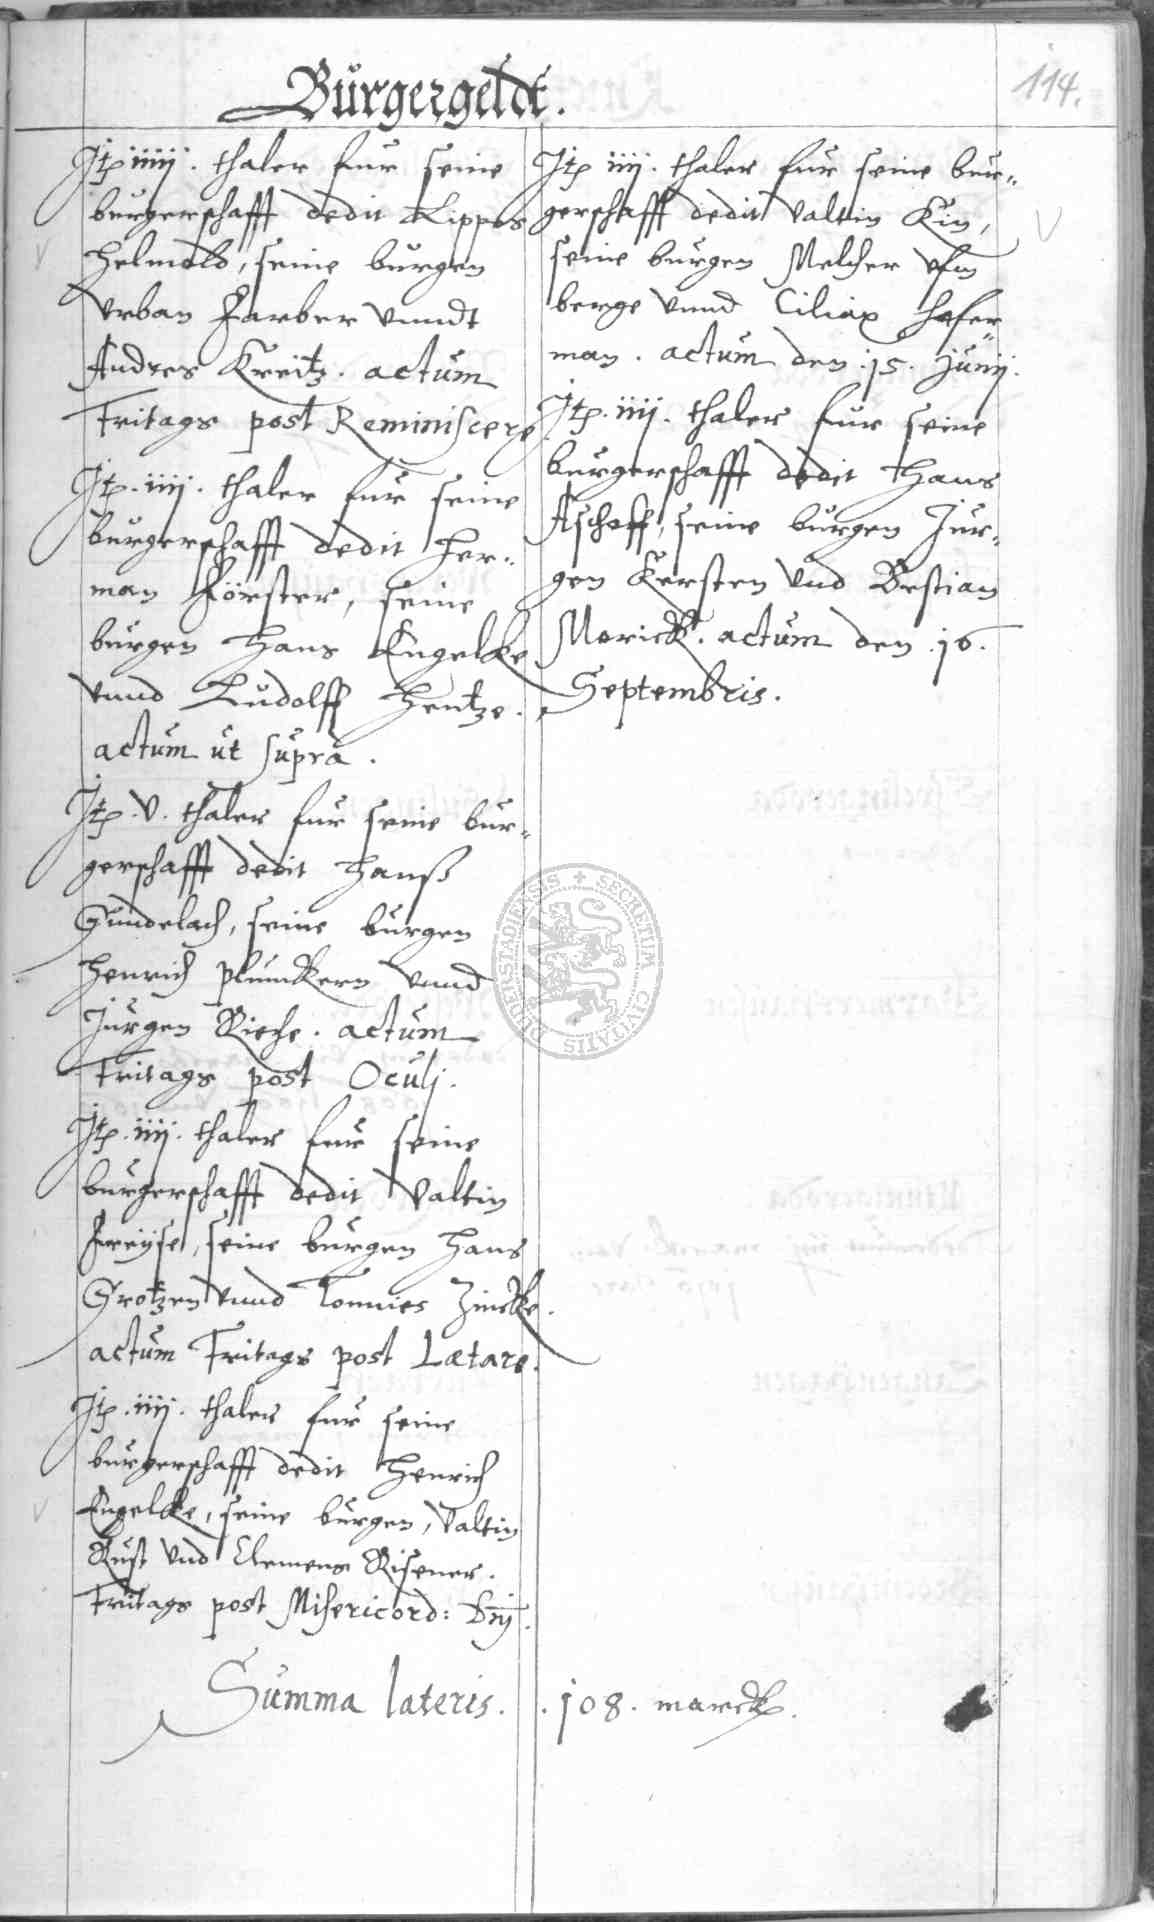 114.
Bürgergeldt.
Itp iiiij. thaler fur seine
burgerschafft dedit Lippes
Helmold, seine burgen
Vrban Farber vnndt
Andres Kreitz. actum
Fritags post Reminiscere
Itp. iiij. thaler fur seine
burgerschafft dedit Her-
man Förster, seine
burgen Hans Engelke
vnnd Ludolff Hentze.
actum ut supra.
Itp. v. thaler fur seine bur-
gerschafft dedit Hanß
Gundelach, seine burgen
Henrich plunckern vnnd
Jurgen Rieche. actum
Fritags post Oculj.
Itp. iiij. thaler fur seine
burgerschafft dedit Valtin
Freyse, seine burgen Hans
Grotzen vnnd Tonnies Zincke.
actum Fritags post Lætare.
Itp. iiij. thaler fur seine
burgerschafft dedit Henrich
Engelke, seine burgen, Valtin
Rust vnd Clemens Risener.
Fritags post Misericord: Dnj.
Itp iiij. thaler fur seine bur-
gerschafft dedit Valtin Kin,
seine burgen Melcher vfm
berge vnnd Ciliax Hefer-
man. actum den .15. Junij.
Itp. iiij. thaler fur seine
burgerschafft dedit Hans
Aschoff, seine burgen Jur-
gen Kersten vnd Bestian
Morick. actum den .16.
Septembris.
Summa lateris. .108. marck.
SECRETUM CIVITATIS DUDERSTADIENSIS